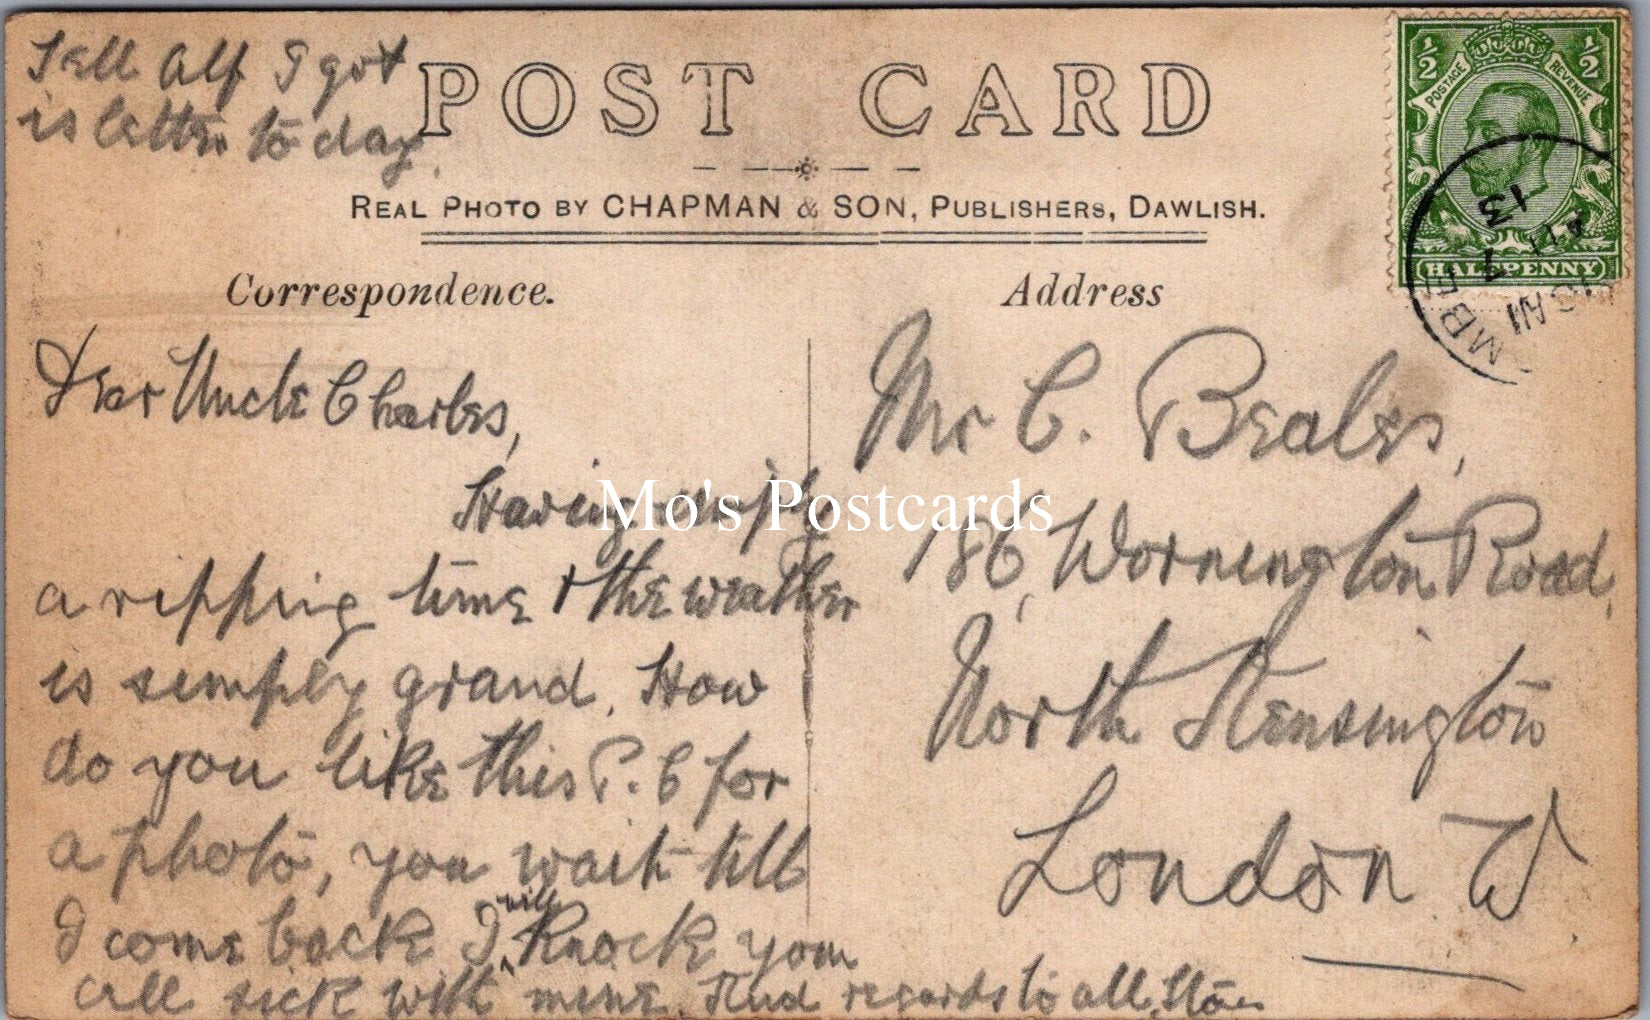 Tell Alf I got
is letter to day.
POST CARD
REAL PHOTO BY CHAPMAN & SON, PUBLISHERS, DAWLISH.
Correspondence.
Dear Uncle Charles,
Having simply
a ripping time & the weather
is simply grand. How
do you like this P.C for
a photo, you wait till
I come back I will knock you
all sick with mine. Kind regards to all,
Address
Mr C. Beales,
186, Wornington Road,
North Kensington
London W.
½ ½
POSTAGE REVENUE
HALFPENNY
MBE
AU 7
13
Mo's Postcards